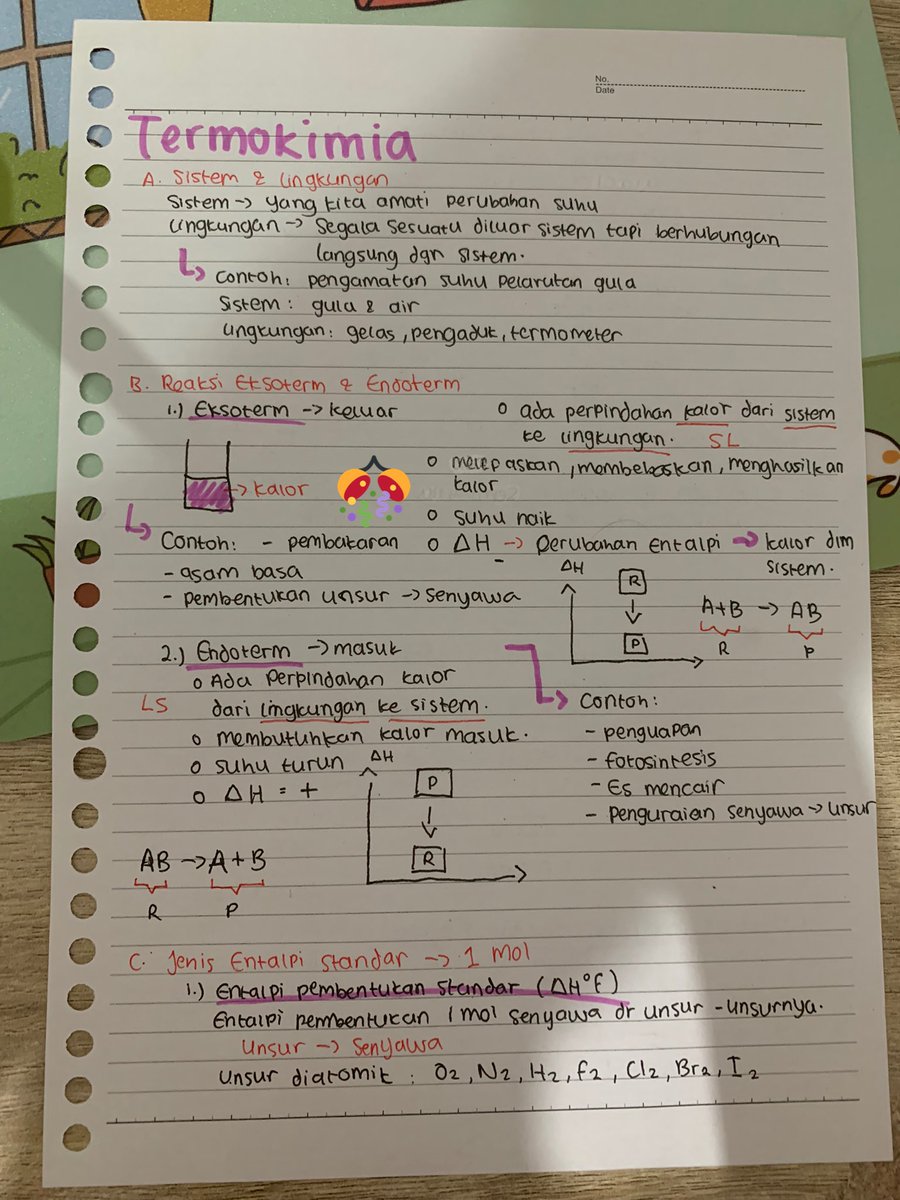 No.
Date
Termokimia
A. Sistem & Lingkungan
Sistem → yang kita amati perubahan suhu
Lingkungan → Segala sesuatu diluar sistem tapi berhubungan
langsung dgn sistem.
↳ Contoh: pengamatan suhu pelarutan gula
Sistem : gula & air
Lingkungan : gelas, pengaduk, termometer
B. Reaksi Eksoterm & Endoterm
1.) Eksoterm → keluar
→ kalor
↳ Contoh: - pembakaran
- asam basa
- pembentukan unsur → senyawa
o ada perpindahan kalor dari sistem
ke lingkungan. SL
o melepaskan, membebaskan, menghasilkan
kalor
o suhu naik
o ΔH → perubahan entalpi → kalor dlm
- sistem.
ΔH
R
↓
P
A+B → AB
R P
2.) Endoterm → masuk
o Ada perpindahan kalor
LS dari lingkungan ke sistem.
o membutuhkan kalor masuk.
o suhu turun
o ΔH = +
ΔH
P
↓
R
AB → A + B
R P
↳ Contoh:
- penguapan
- fotosintesis
- Es mencair
- Penguraian senyawa → unsur
C. Jenis Entalpi standar → 1 mol
1.) Entalpi pembentukan standar (ΔH°F)
Entalpi pembentukan 1 mol senyawa dr unsur - unsurnya.
Unsur → Senyawa
Unsur diatomik : O2, N2, H2, F2, Cl2, Br2, I2